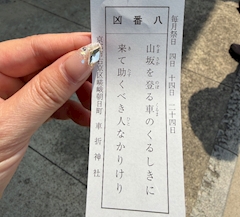 八番凶
毎月祭日 四日 十四日 二十四日
山坂を登る車のくるしきに
来て助くべき人なかりけり
京 嵯峨朝日町 車折神社